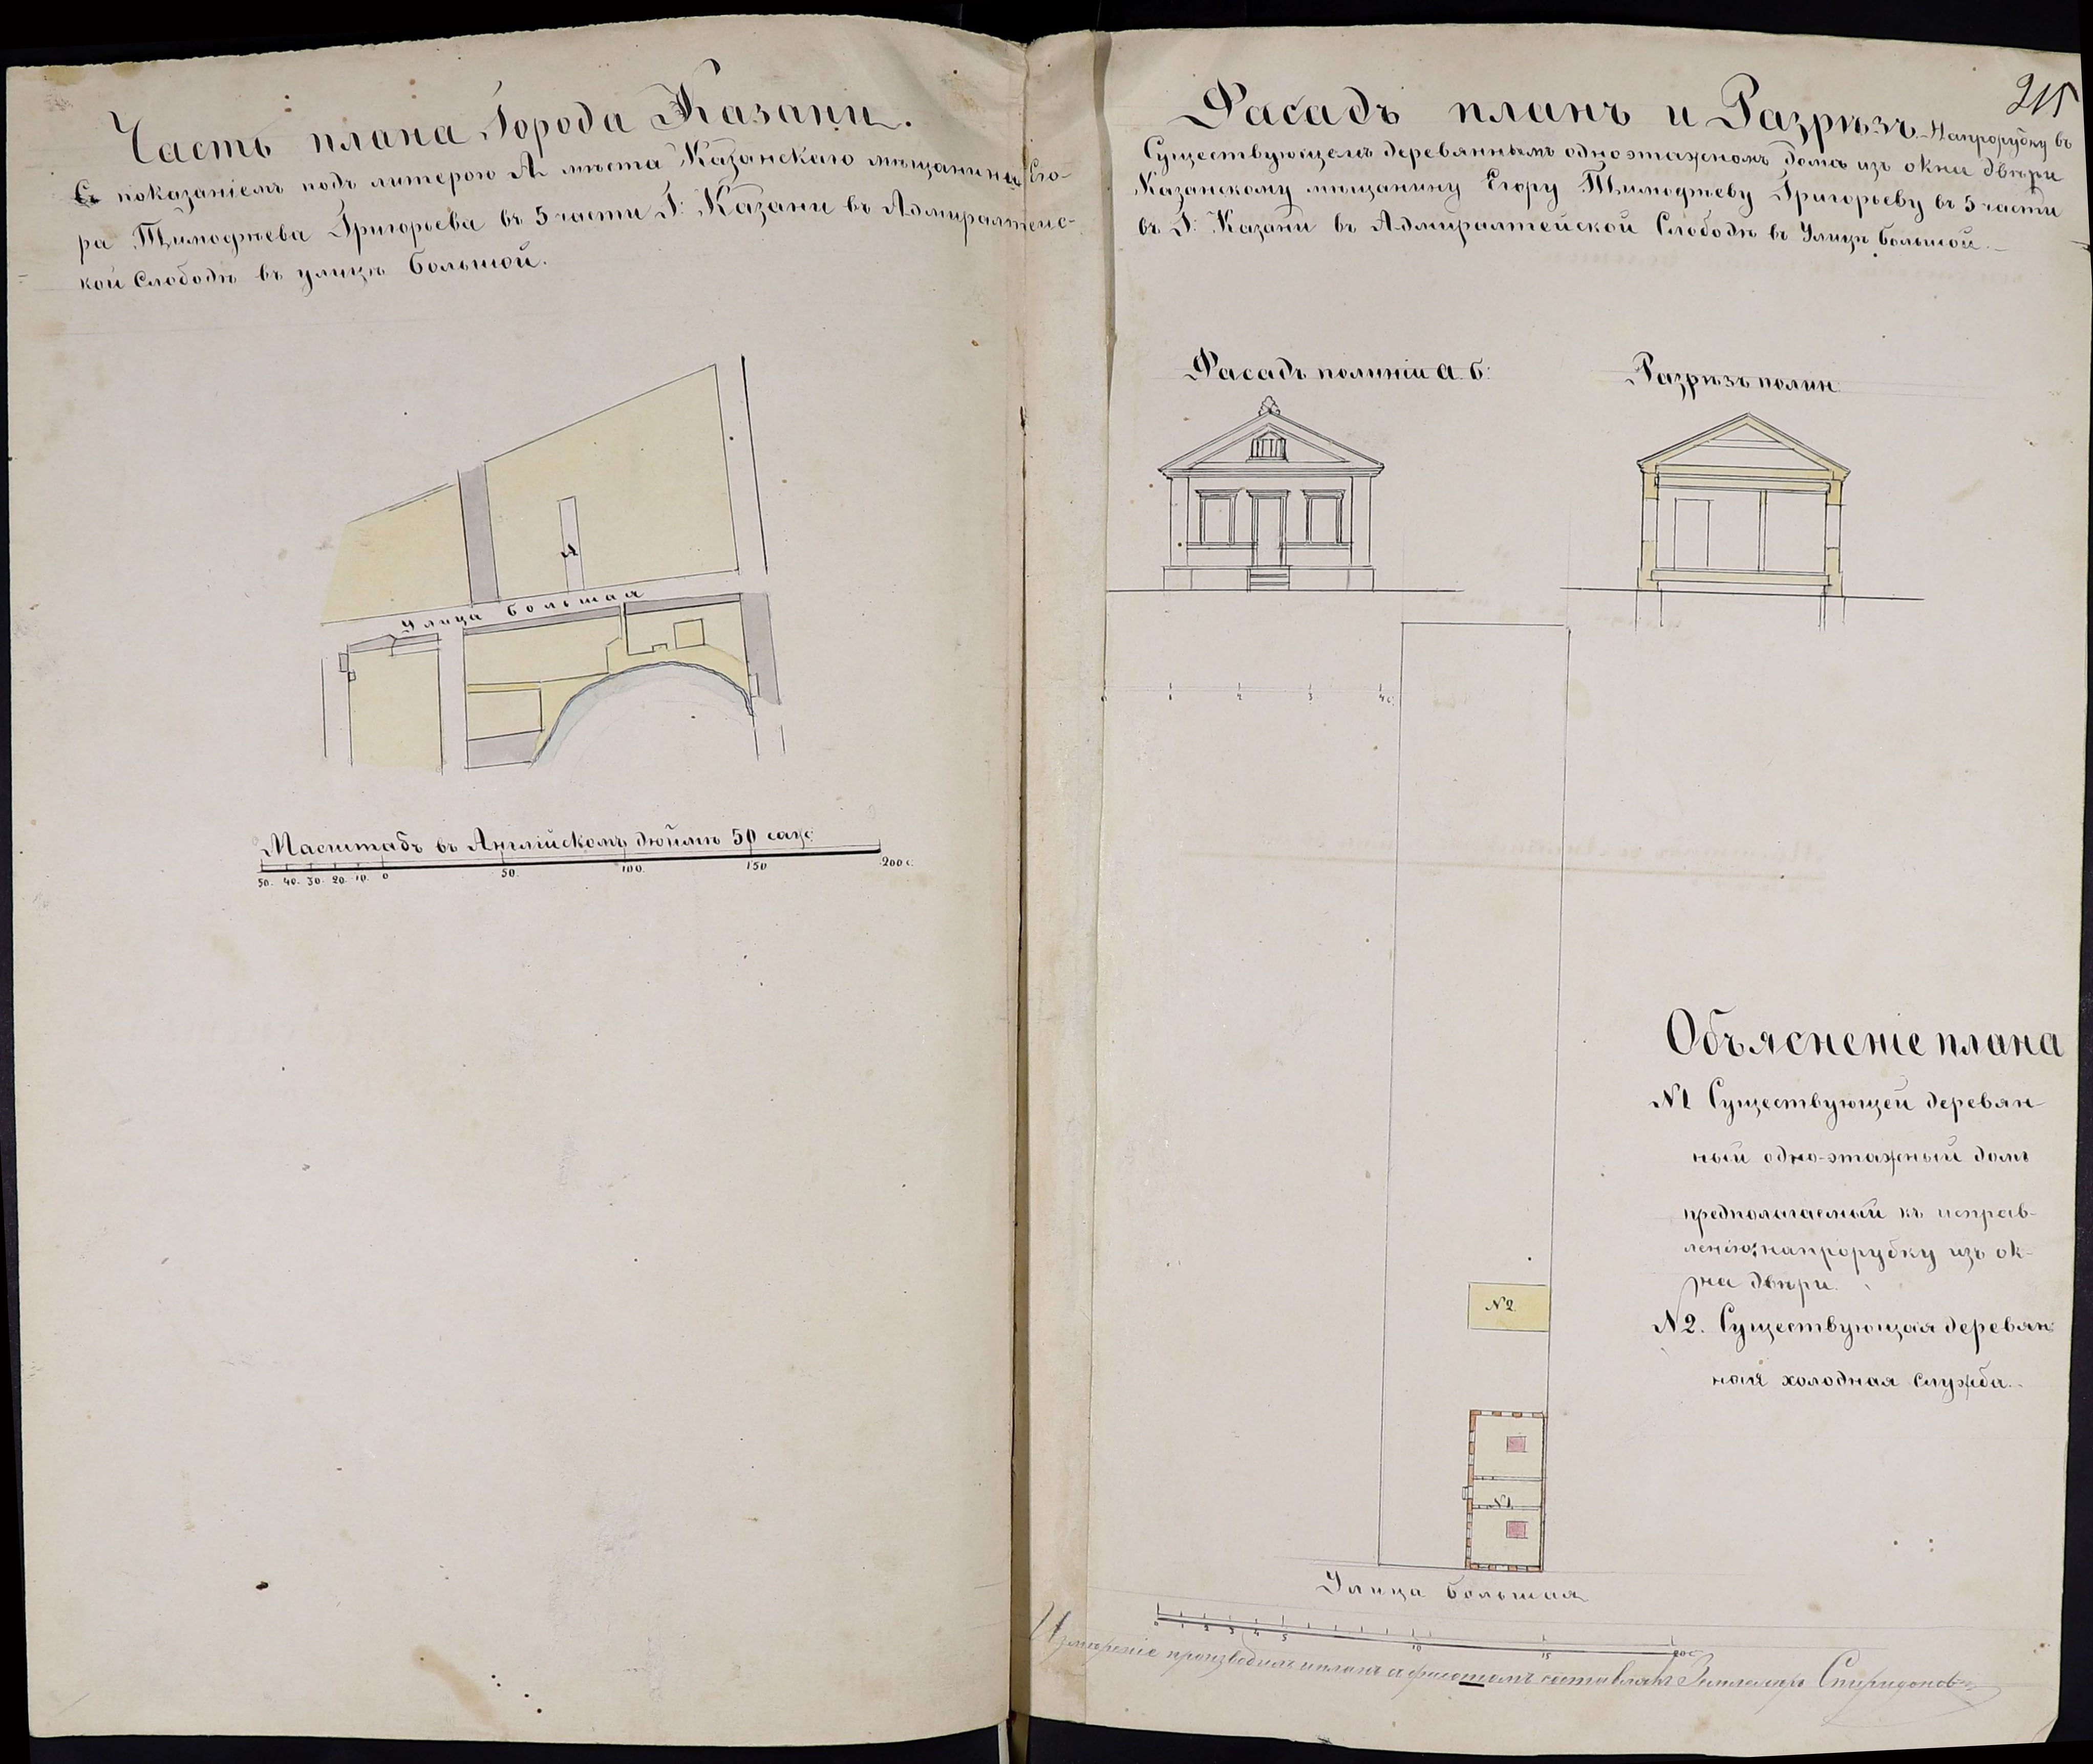 Часть плана Города Казани.
Съ показаніемъ подъ литерою А мѣста Казанскаго мѣщанина Его-
ра Тимофѣева Григорьева въ 5 части Г: Казани въ Адмиралтейс-
кой Слободѣ въ улицѣ большой.
А
Улица большая
Масштабъ въ Англійскомъ дюймѣ 50 саж:
50. 40. 30. 20. 10. 0 50. 100. 150 200 с.
215
Фасадъ планъ и Разрѣзъ. Напрорубку въ
Существующемъ деревянномъ одноэтажномъ домѣ изъ окна двѣри
Казанскому мѣщанину Егору Тимофѣеву Григорьеву въ 5 части
въ Г: Казани въ Адмиралтейской Слободѣ въ Улицѣ большой.
Фасадъ полиніи а. б:
Разрѣзъ полин
1 2 3 4с:
Объясненіе плана
№1 Существующей деревян
ный одно-этажный домъ
предполагаемый къ исправ-
ленію: напрорубку изъ ок-
на двѣри.
№2. Существующая деревян:
ная холодная служба.
№2.
№1.
Улица большая
0 1 2 3 4 5 10 15 20 с
Измѣреніе производилъ и планъ съ фасадомъ составлялъ Землемѣръ Спиридоновъ